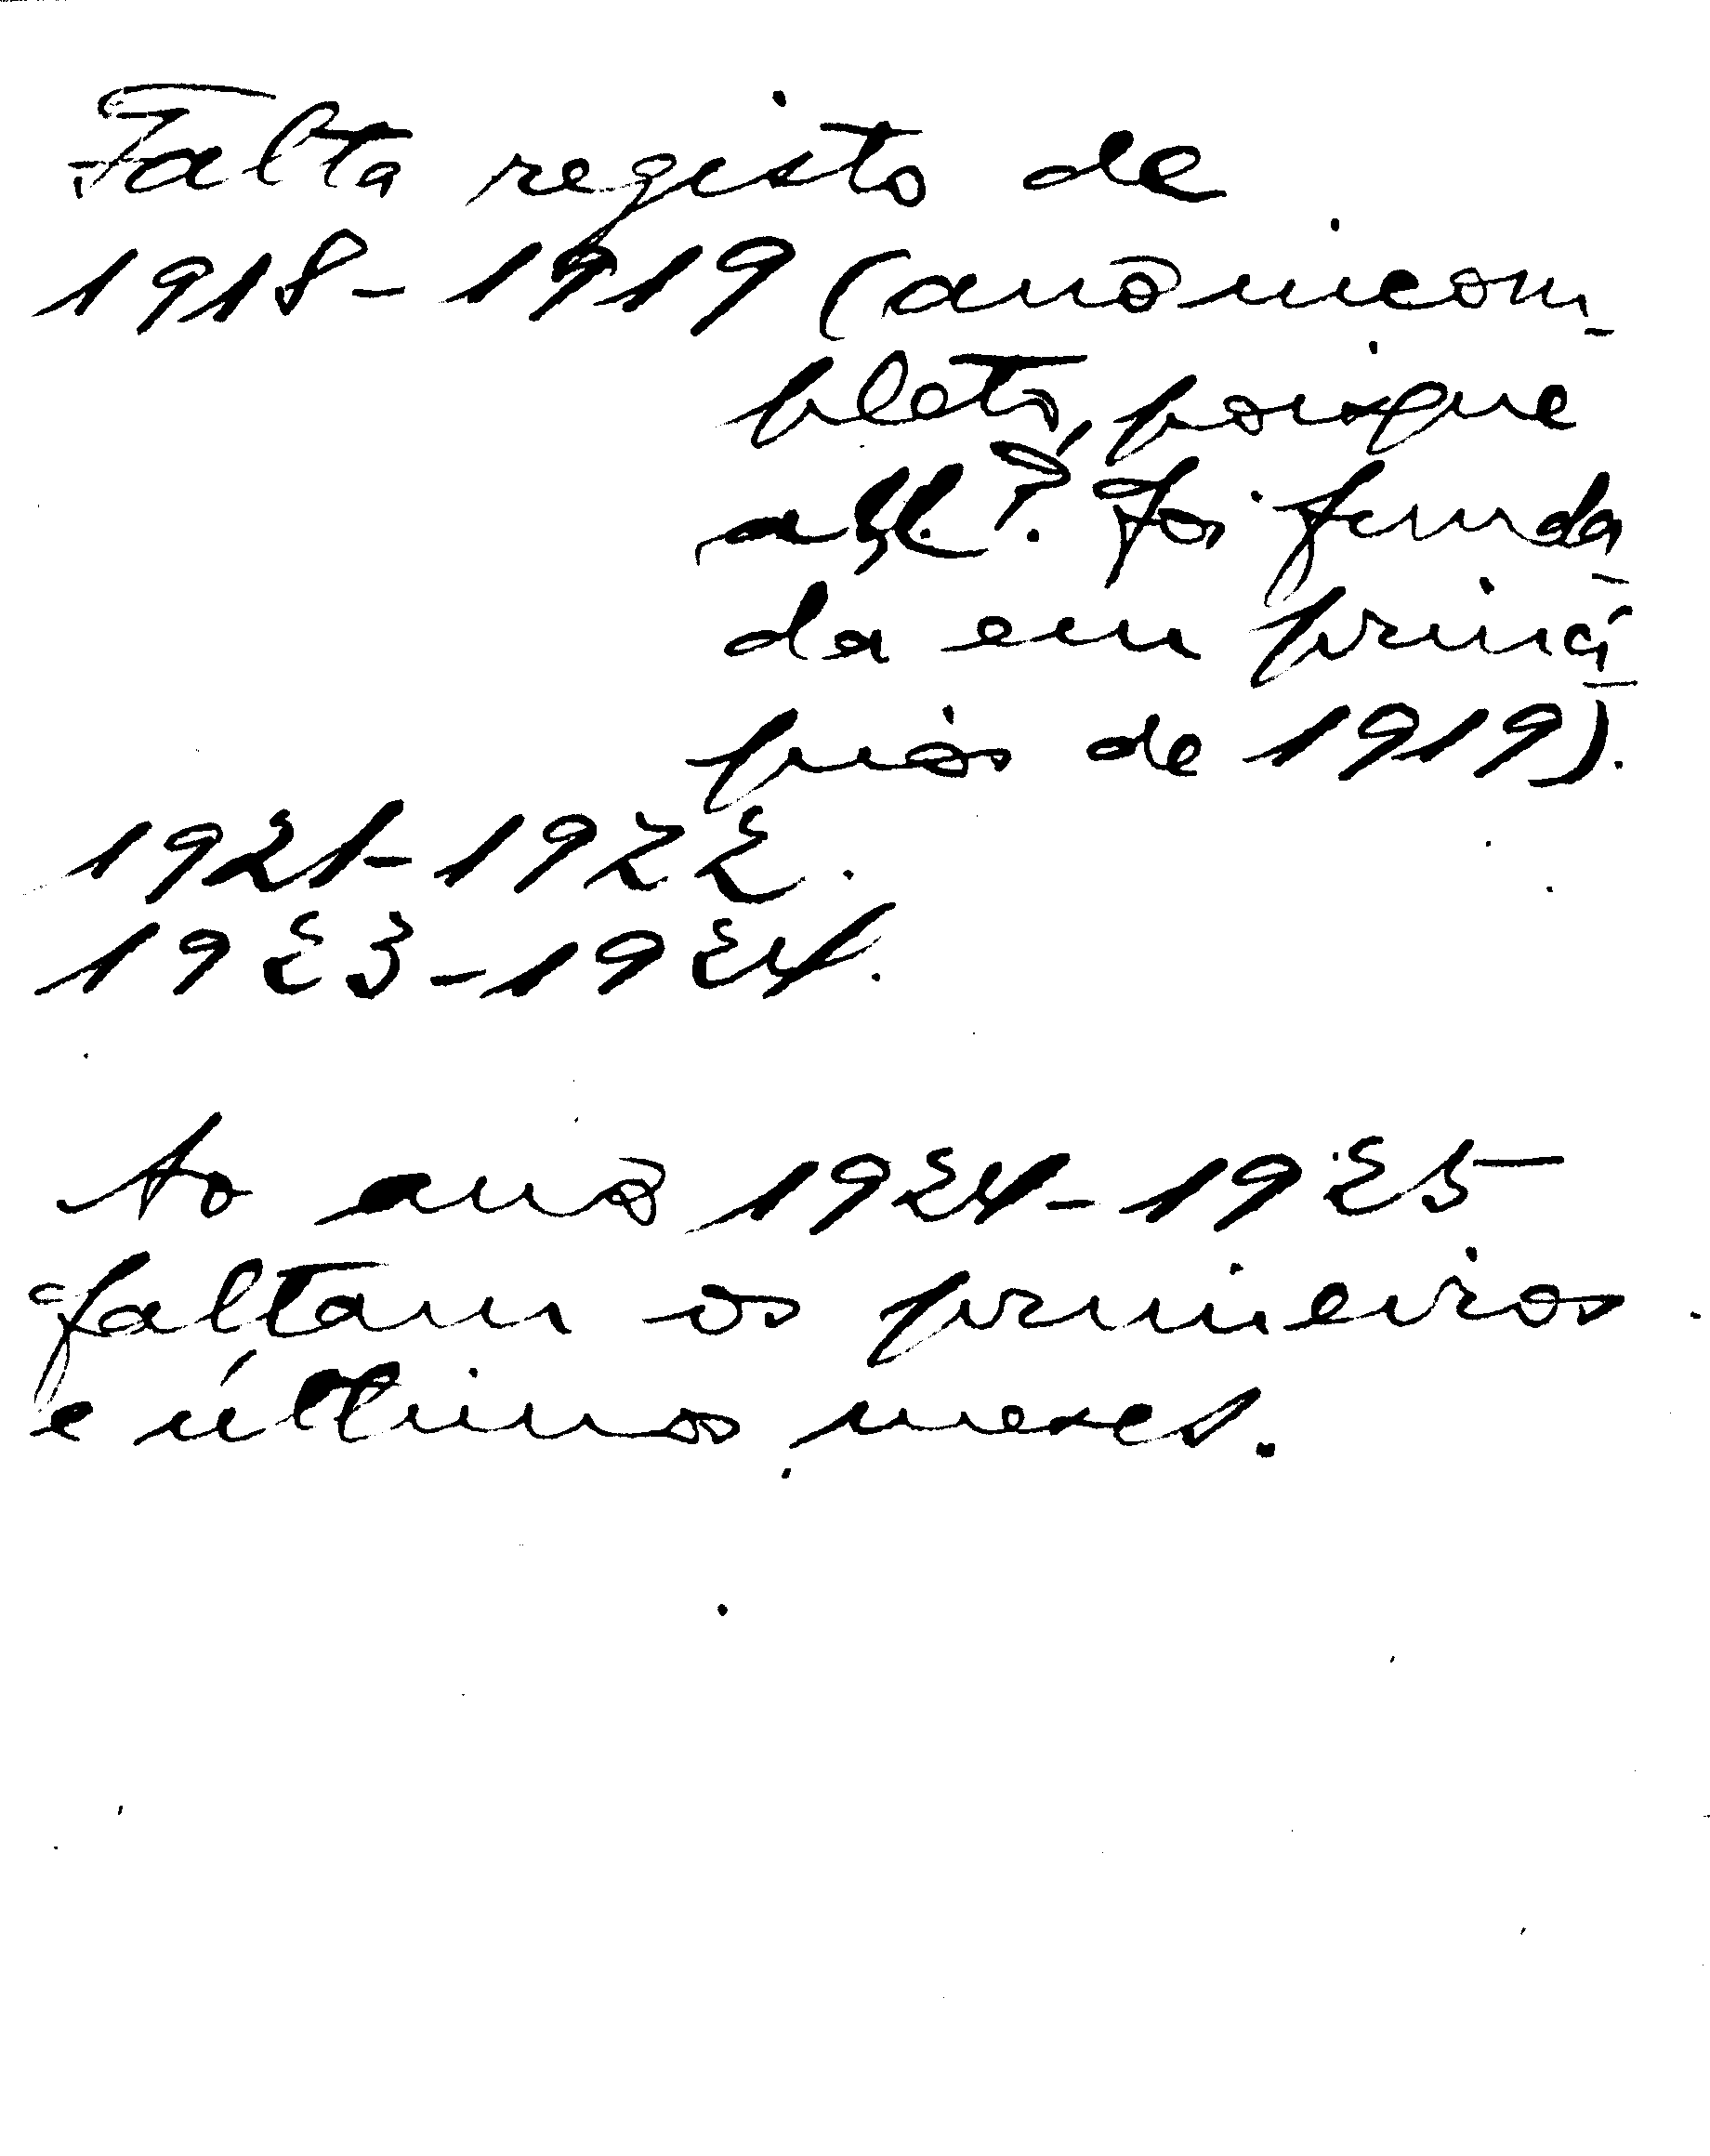 Falta registo de
1918-1919 (ano incom-
pleto, porque
a U. P. foi funda-
da em princí-
pios de 1919).
1921-1922.
1923-1924.
Ao ano 1924-1925
faltam os primeiros
e últimos meses.